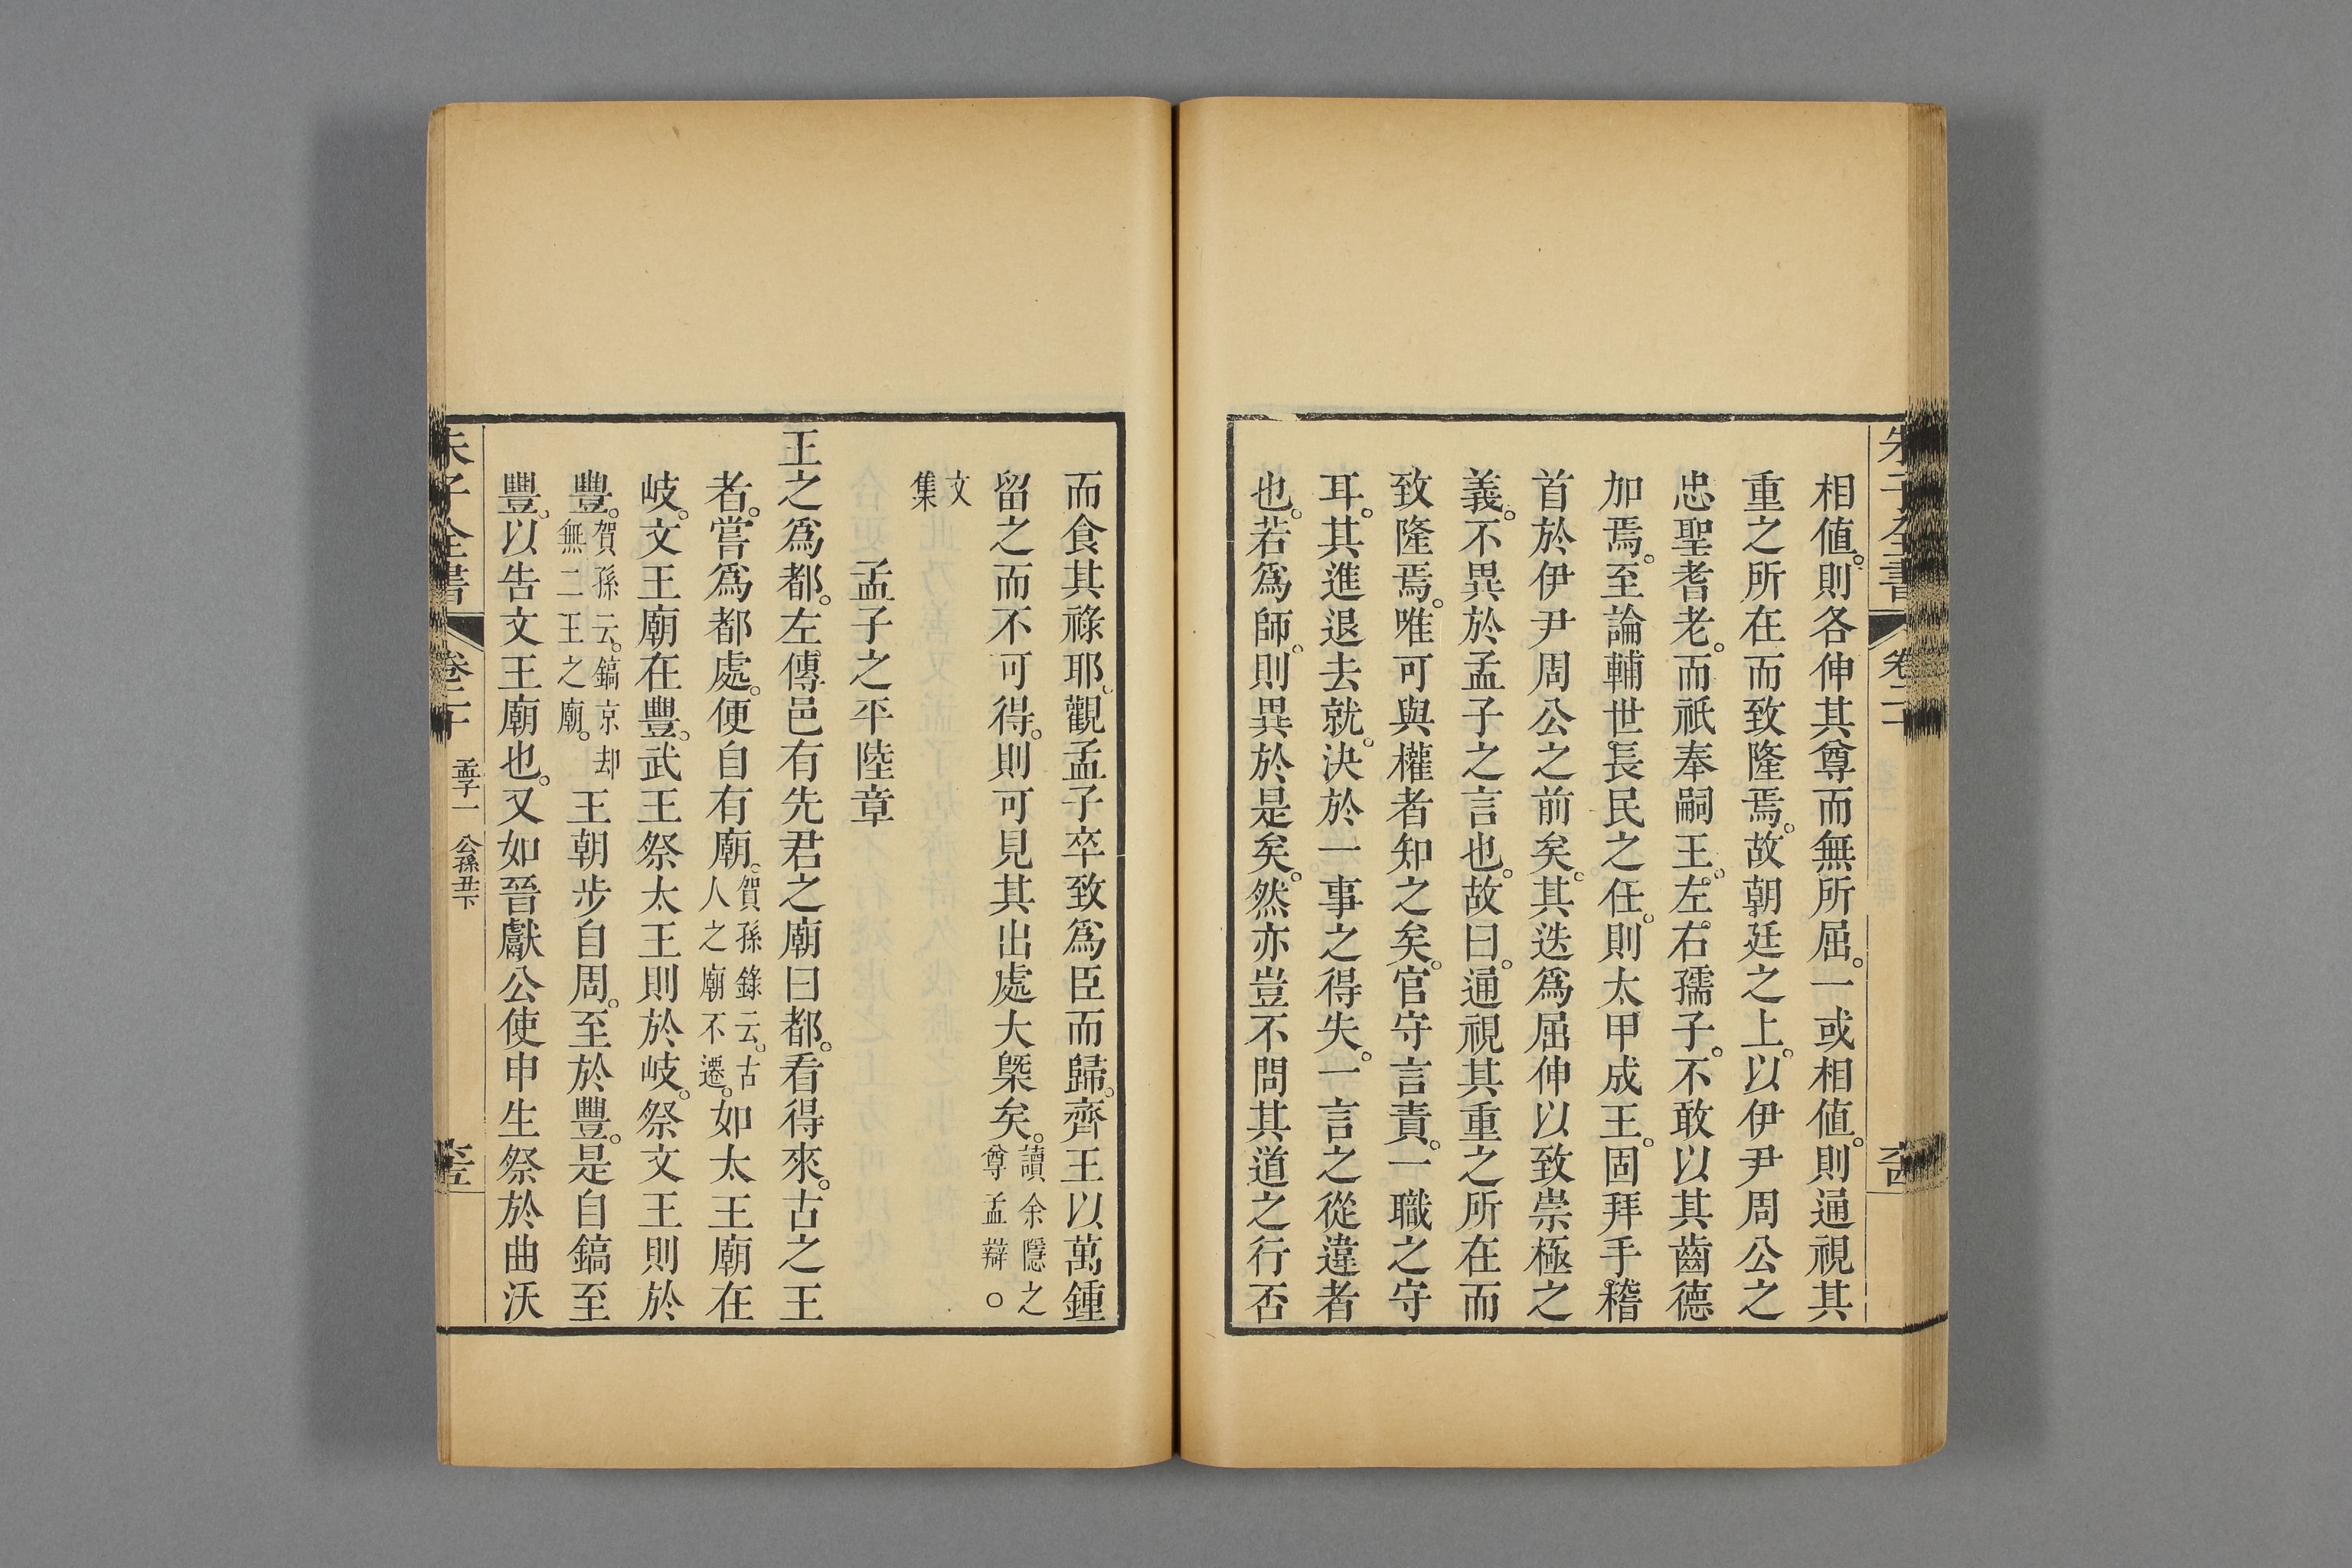 朱子全書
卷二十
相値。則各伸其尊而無所屈。一或相値。則通視其
重之所在而致隆焉。故朝廷之上。以伊尹周公之
忠聖耆老。而祇奉嗣王。左右孺子。不敢以其齒德
加焉。至論輔世長民之任。則太甲成王。固拜手稽
首於伊尹周公之前矣。其迭爲屈伸以致崇極之
義。不異於孟子之言也。故曰。通視其重之所在而
致隆焉。唯可與權者知之矣。官守言責。一職之守
耳。其進退去就。決於一事之得失。一言之從違者
也。若爲師。則異於是矣。然亦豈不問其道之行否
而食其祿耶。觀孟子卒致爲臣而歸。齊王以萬鍾
留之而不可得。則可見其出處大槩矣。讀余隱之
尊孟辯○
文
集
孟子之平陸章
王之爲都。左傳邑有先君之廟曰都。看得來。古之王
者。嘗爲都處。便自有廟。賀孫錄云。古
人之廟不遷。如太王廟在
岐。文王廟在豐。武王祭太王則於岐。祭文王則於
豐。賀孫云。鎬京却
無二王之廟。王朝步自周。至於豐。是自鎬至
豐。以告文王廟也。又如晉獻公使申生祭於曲沃
朱子全書
卷二十
孟子一 公孫丑下